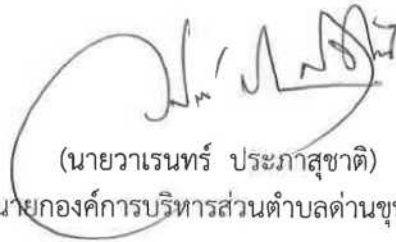 (นายวาเรนทร์ ประภาสุชาติ)
นายกองค์การบริหารส่วนตำบลด่านขุน